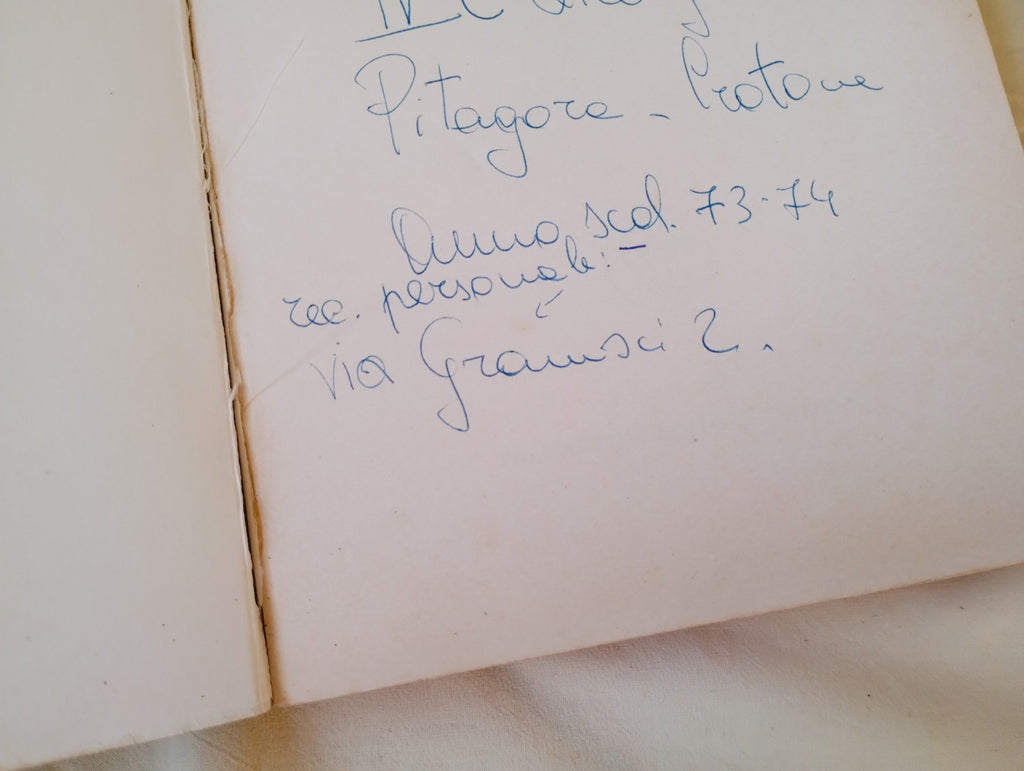 IV C
Pitagora - Crotone
Anno scol. 73-74
rec. personale:
via Gramsci 2.